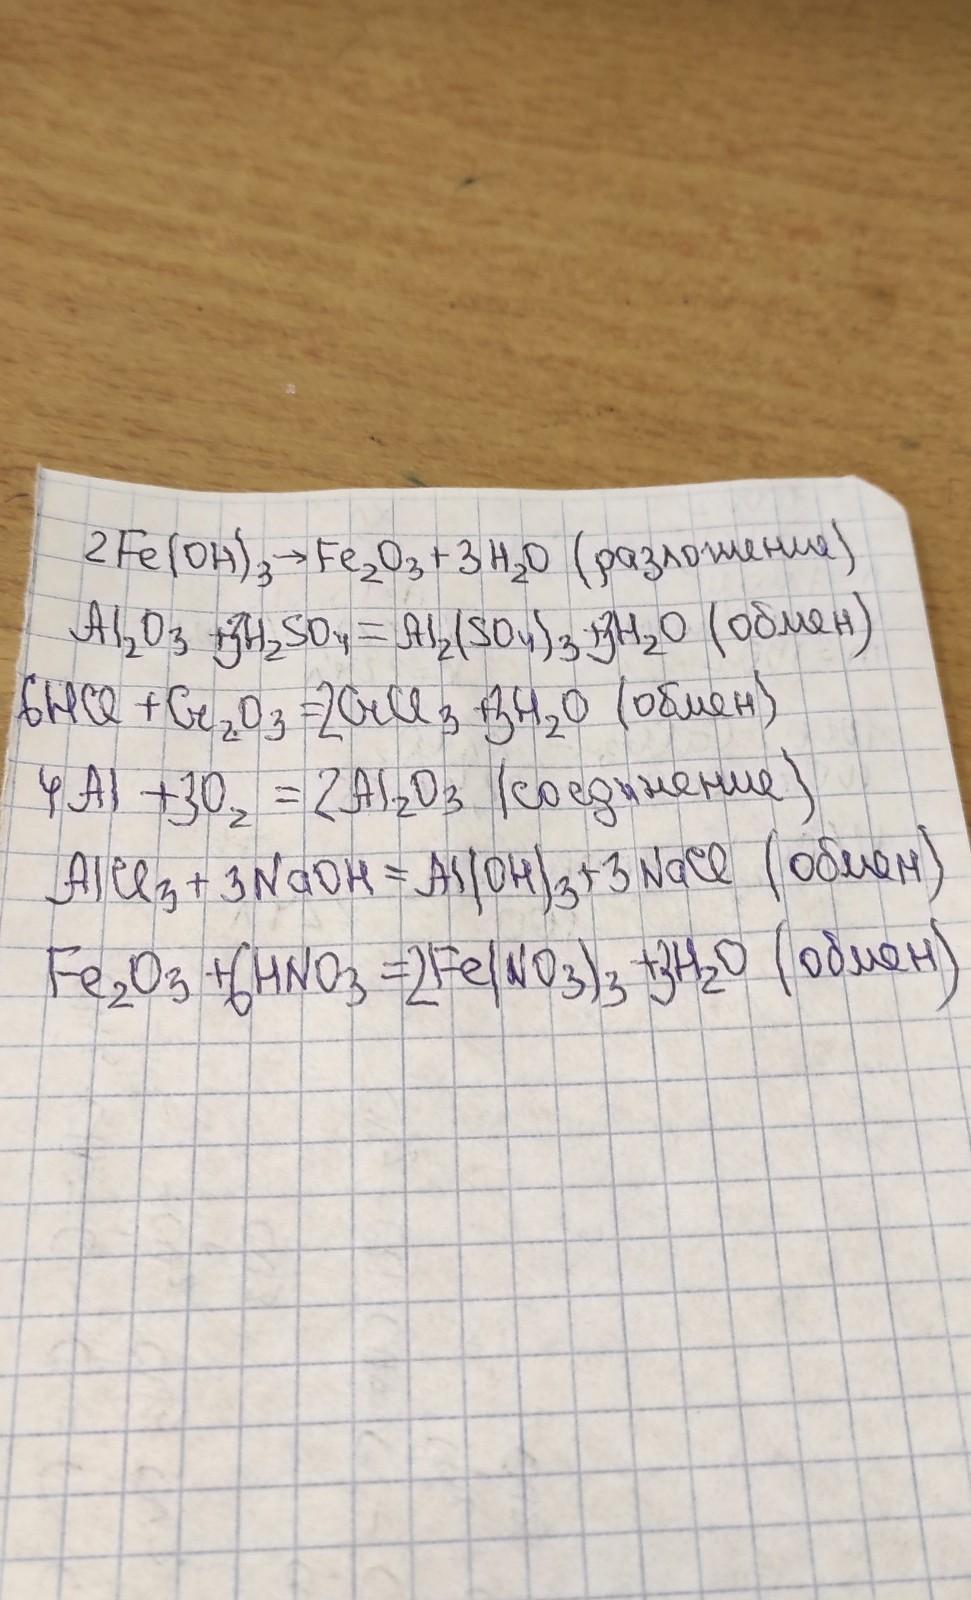 2Fe(OH)₃→Fe₂O₃+3H₂O (разложение)
Al₂O₃ +3H₂SO₄=Al₂(SO₄)₃+3H₂O (обмен)
6HCl +Cr₂O₃=2CrCl₃ +3H₂O (обмен)
4Al +3O₂ =2Al₂O₃ (соединение)
AlCl₃+3NaOH=Al(OH)₃+3NaCl (обмен)
Fe₂O₃ +6HNO₃=2Fe(NO₃)₃ +3H₂O (обмен)